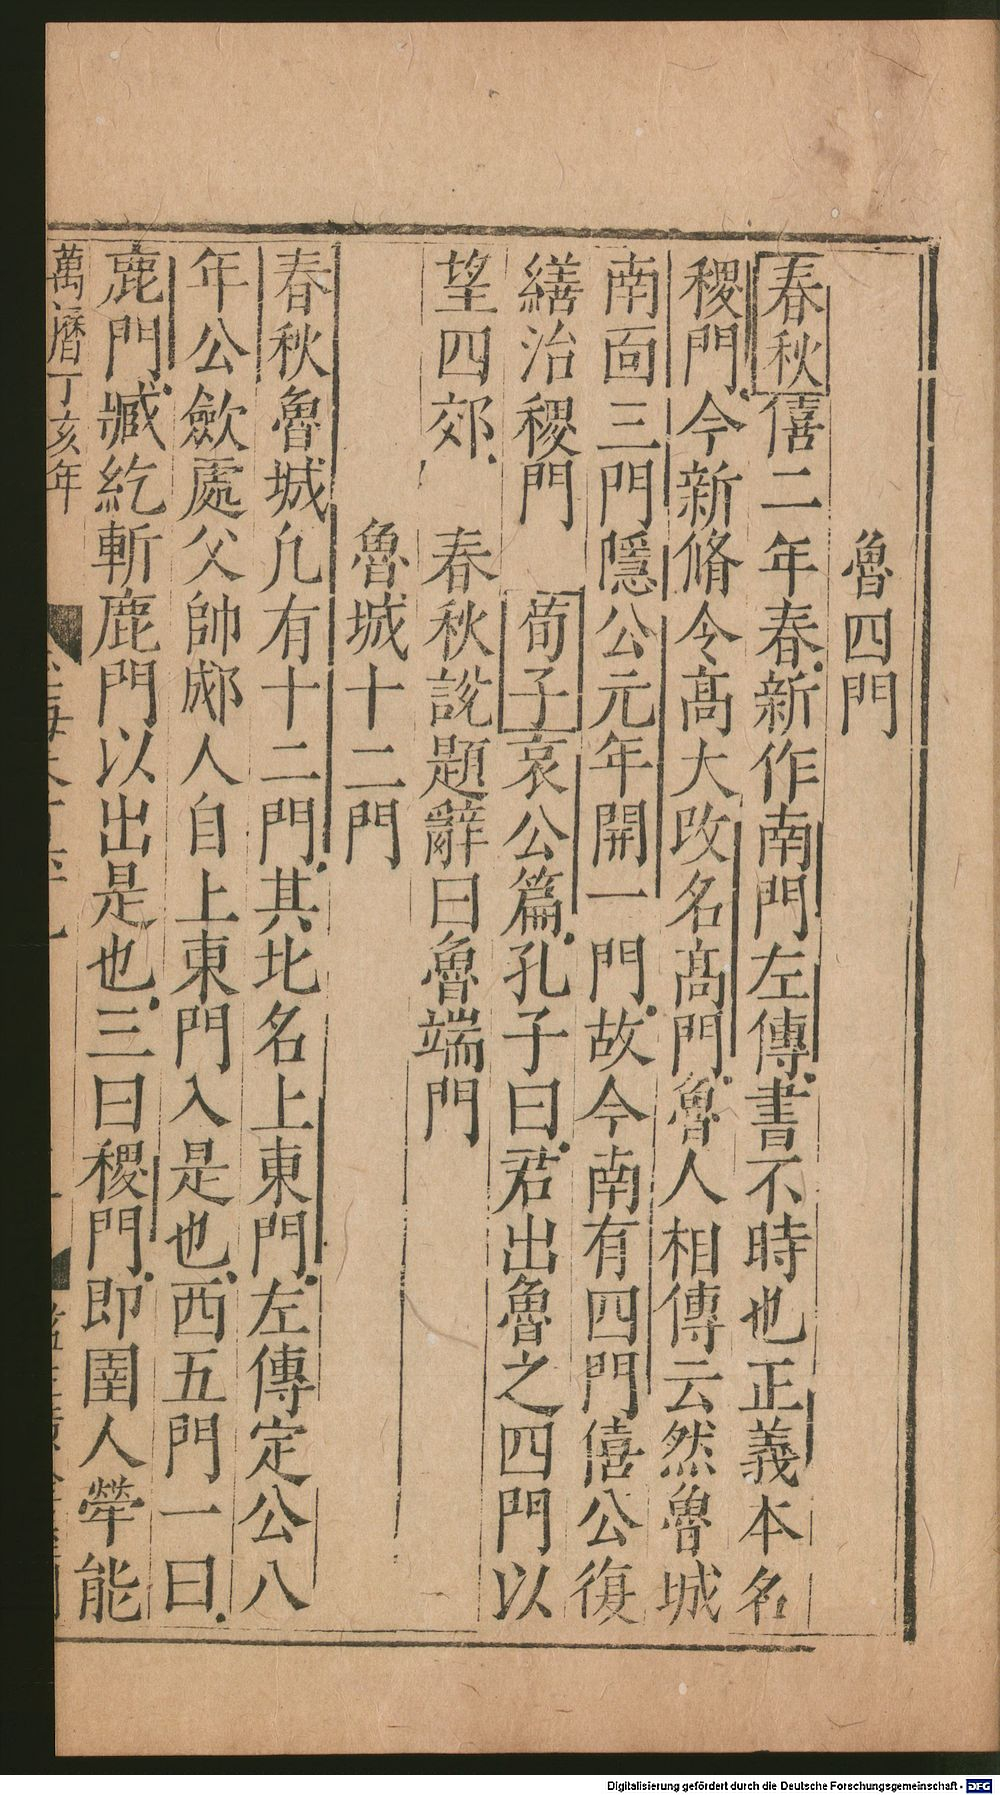 魯四門
春秋僖二年春新作南門左傳書不時也正義本名
稷門今新脩令髙大改名髙門魯人相傳云然魯城
南面三門隱公元年開一門故今南有四門僖公復
繕治稷門　荀子哀公篇孔子曰君出魯之四門以
望四郊　春秋說題辭曰魯端門
魯城十二門
春秋魯城凢有十二門其北名上東門左傳定公八
年公歛處父帥郕人自上東門入是也西五門一曰
鹿門臧紇斬鹿門以出是也三曰稷門即圉人犖能
萬曆丁亥年
Digitalisierung gefördert durch die Deutsche Forschungsgemeinschaft - DFG